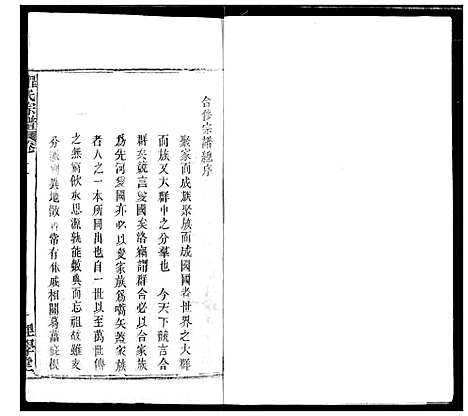 合修宗譜總序
聚家而成族聚族而成國國者世界之大群
而族又大群中之分羣也 今天下競言合
群矣競言愛國矣洛 謂群合必以合家族
為先河愛國亦必以愛家族為嚆矢蓋家族
者人之一本所同出也自一世以至萬世傳
之無窮飲水思源孰能數典而忘祖故雖支
分派 異地散 常有休戚相關葛藟庇根
氏宗譜 卷